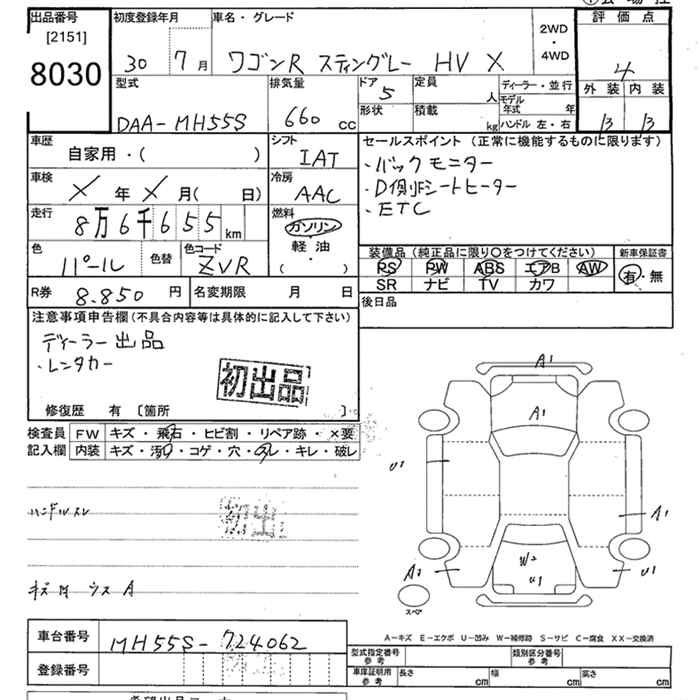 出品番号
[2151]
8030
初度登録年月
30 7 月
車名・グレード
ワゴンR スティングレー HV X
2WD
・
4WD
評価点
4
外装 内装
B B
型式
DAA-MH55S
排気量
660 cc
ドア
5
形状
定員
人
積載
kg
ディーラー・並行
モデル年式 年
ハンドル 左・右
車歴
自家用・( )
シフト
IAT
車検
X 年 X 月( 日)
冷房
AAC
走行
8万6千655 km
燃料
ガソリン
・
軽油
・
( )
色
パール
色替
色コード
ZVR
R券
8.850 円
名変期限 月 日
セールスポイント(正常に機能するものに限ります)
・バックモニター
・D側Fシートヒーター
・ETC
装備品(純正品に限り○をつけてください)
PS PW ABS エアB AW
SR ナビ TV カワ
新車保証書
有・無
後日品
注意事項申告欄(不具合内容等は具体的に記入して下さい)
ディーラー出品
・レンタカー
初出品
修復歴 有 〔箇所 〕
検査員
記入欄
FW キズ・飛石・ヒビ割・リペア跡・×要
内装 キズ・汚れ・コゲ・穴・スレ・キレ・破レ
ハンドルスレ
初出
A1
A1
U1
A1
W2
U1
A2
U1
スペア
A−キズ E−エクボ U−凹み W−補修跡 S−サビ C−腐食 XX−交換済
車台番号
MH55S-724062
登録番号
型式指定番号
参考
類別区分番号
参考
車庫証明用
参考
長さ cm
幅 cm
高さ cm